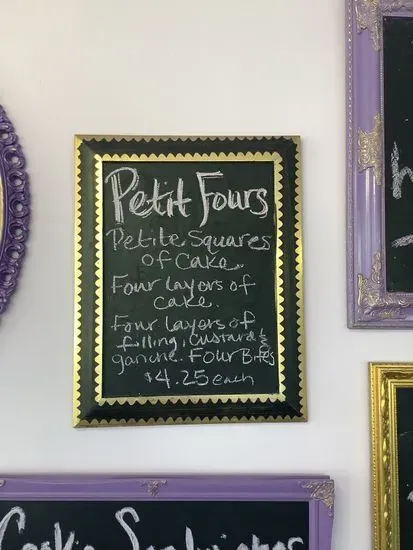 Petit Fours
Petite Squares
of Cake.
Four layers of
cake.
Four layers of
filling, custard &
ganche. Four Bites
$4.25 each
Cookie Sandwiches